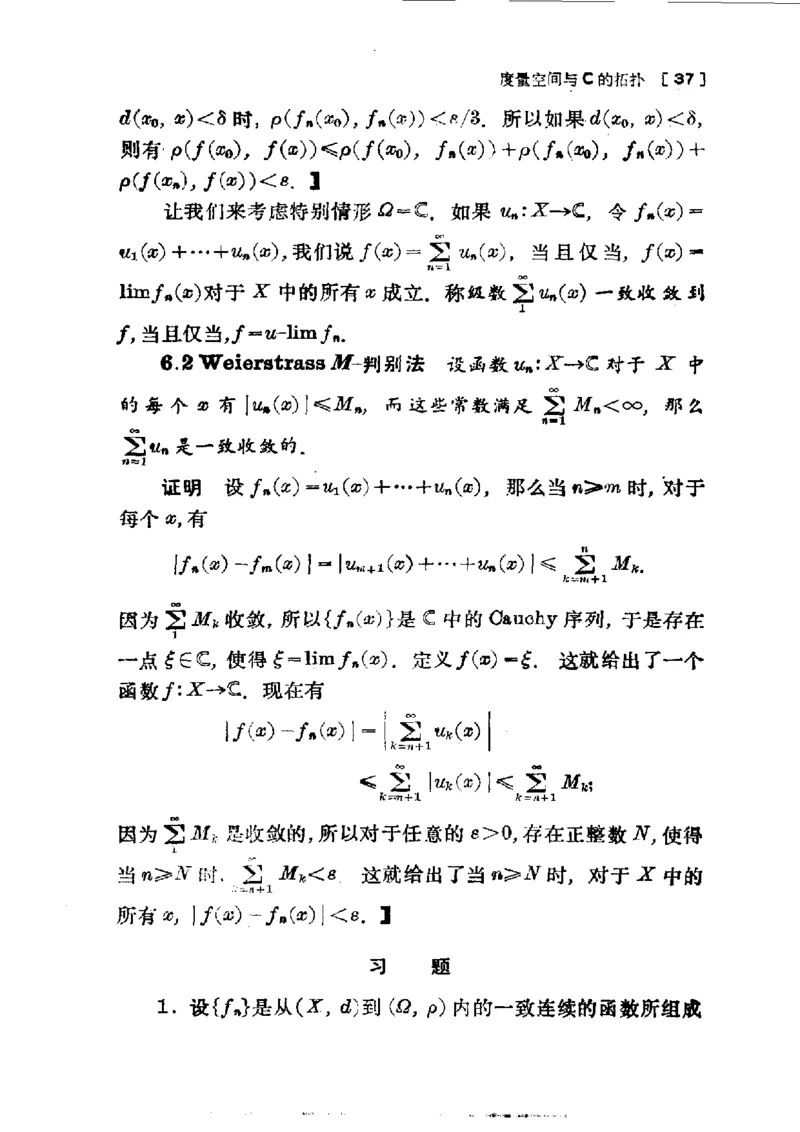 度量空间与 C 的拓扑 [37]
d(x₀, x)<δ 时, ρ(fₙ(x₀), fₙ(x))<ε/3. 所以如果 d(x₀, x)<δ,
则有 ρ(f(x₀), f(x))≤ρ(f(x₀), fₙ(x))+ρ(fₙ(x₀), fₙ(x))+
ρ(f(xₙ), f(x))<ε. 】
让我们来考虑特别情形 Ω=ℂ. 如果 uₙ: X→ℂ, 令 fₙ(x)=
u₁(x)+⋯+uₙ(x), 我们说 f(x)=∑_{n=1}^{∞} uₙ(x), 当且仅当, f(x)=
lim fₙ(x)对于 X 中的所有 x 成立. 称级数 ∑_{1}^{∞} uₙ(x) 一致收敛到
f, 当且仅当, f=u-lim fₙ.
6.2 Weierstrass M-判别法 设函数 uₙ: X→ℂ 对于 X 中
的每个 x 有 |uₙ(x)|≤Mₙ, 而这些常数满足 ∑_{n=1}^{∞} Mₙ<∞, 那么
∑_{n=1}^{∞} uₙ 是一致收敛的.
证明 设 fₙ(x)=u₁(x)+⋯+uₙ(x), 那么当 n≥m 时, 对于
每个 x, 有
|fₙ(x)-fₘ(x)|=|uₘ₊₁(x)+⋯+uₙ(x)|≤∑_{k=m+1}^{n} Mₖ.
因为 ∑_{1}^{∞} Mₖ 收敛, 所以{fₙ(x)}是 ℂ 中的 Cauchy 序列, 于是存在
一点 ξ∈ℂ, 使得 ξ=lim fₙ(x). 定义 f(x)=ξ. 这就给出了一个
函数 f: X→ℂ. 现在有
|f(x)-fₙ(x)|=|∑_{k=n+1}^{∞} uₖ(x)|
≤∑_{k=n+1}^{∞} |uₖ(x)|≤∑_{k=n+1}^{∞} Mₖ;
因为 ∑_{1}^{∞} Mₖ 是收敛的, 所以对于任意的 ε>0, 存在正整数 N, 使得
当 n≥N 时, ∑_{k=n+1}^{∞} Mₖ<ε. 这就给出了当 n≥N 时, 对于 X 中的
所有 x, |f(x)-fₙ(x)|<ε. 】
习 题
1. 设{fₙ}是从(X, d)到(Ω, ρ)内的一致连续的函数所组成